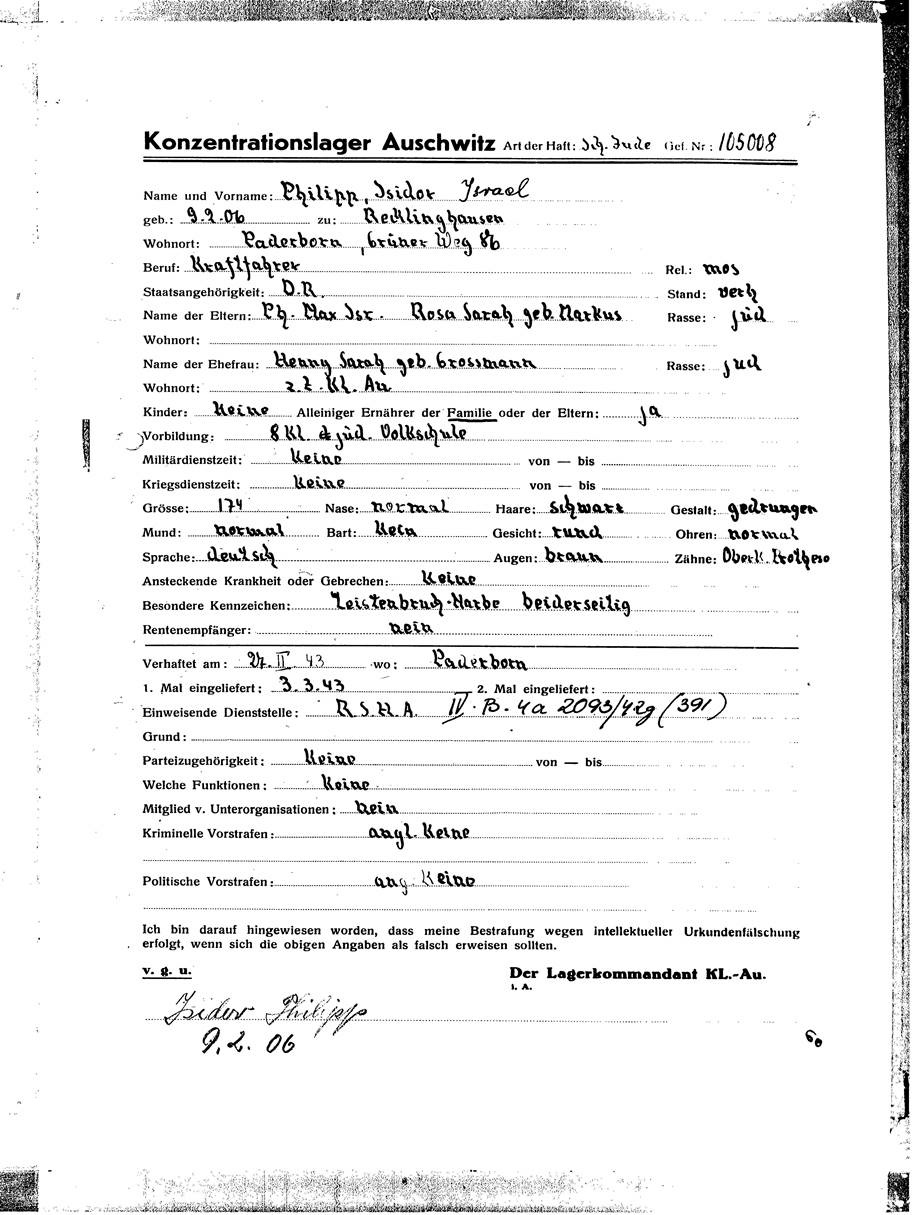 Konzentrationslager Auschwitz Art der Haft: Sch. Jude Gef. Nr.: 105008
Name und Vorname: Philipp, Isidor Israel
geb.: 9.2.06 zu: Recklinghausen
Wohnort: Paderborn, Grüner Weg 86
Beruf: Kraftfahrer Rel.: mos
Staatsangehörigkeit: D.R. Stand: verh
Name der Eltern: Ph. Max Isr. Rosa Sarah geb. Markus Rasse: jüd
Wohnort:
Name der Ehefrau: Henny Sarah geb. Grossmann Rasse: jüd
Wohnort: z.Z. Kl. Au
Kinder: Keine Alleiniger Ernährer der Familie oder der Eltern: ja
Vorbildung: 8 Kl. d jüd. Volkschule
Militärdienstzeit: Keine von — bis
Kriegsdienstzeit: Keine von — bis
Grösse: 174 Nase: normal Haare: schwarz Gestalt: gedrungen
Mund: normal Bart: Kein Gesicht: rund Ohren: normal
Sprache: deutsch Augen: braun Zähne: Oberk. Prothese
Ansteckende Krankheit oder Gebrechen: Keine
Besondere Kennzeichen: Leistenbruch-Narbe beiderseitig
Rentenempfänger: nein
Verhaftet am: 27. II. 43 wo: Paderborn
1. Mal eingeliefert: 3.3.43 2. Mal eingeliefert:
Einweisende Dienststelle: R.S.H.A. IV. B. 4a 2093/42g (391)
Grund:
Parteizugehörigkeit: Keine von — bis
Welche Funktionen: Keine
Mitglied v. Unterorganisationen: nein
Kriminelle Vorstrafen: angl. Keine
Politische Vorstrafen: ang. Keine
Ich bin darauf hingewiesen worden, dass meine Bestrafung wegen intellektueller Urkundenfälschung
erfolgt, wenn sich die obigen Angaben als falsch erweisen sollten.
v. g. u. Der Lagerkommandant KL.-Au.
i. A.
Isidor Philipp
9.2.06